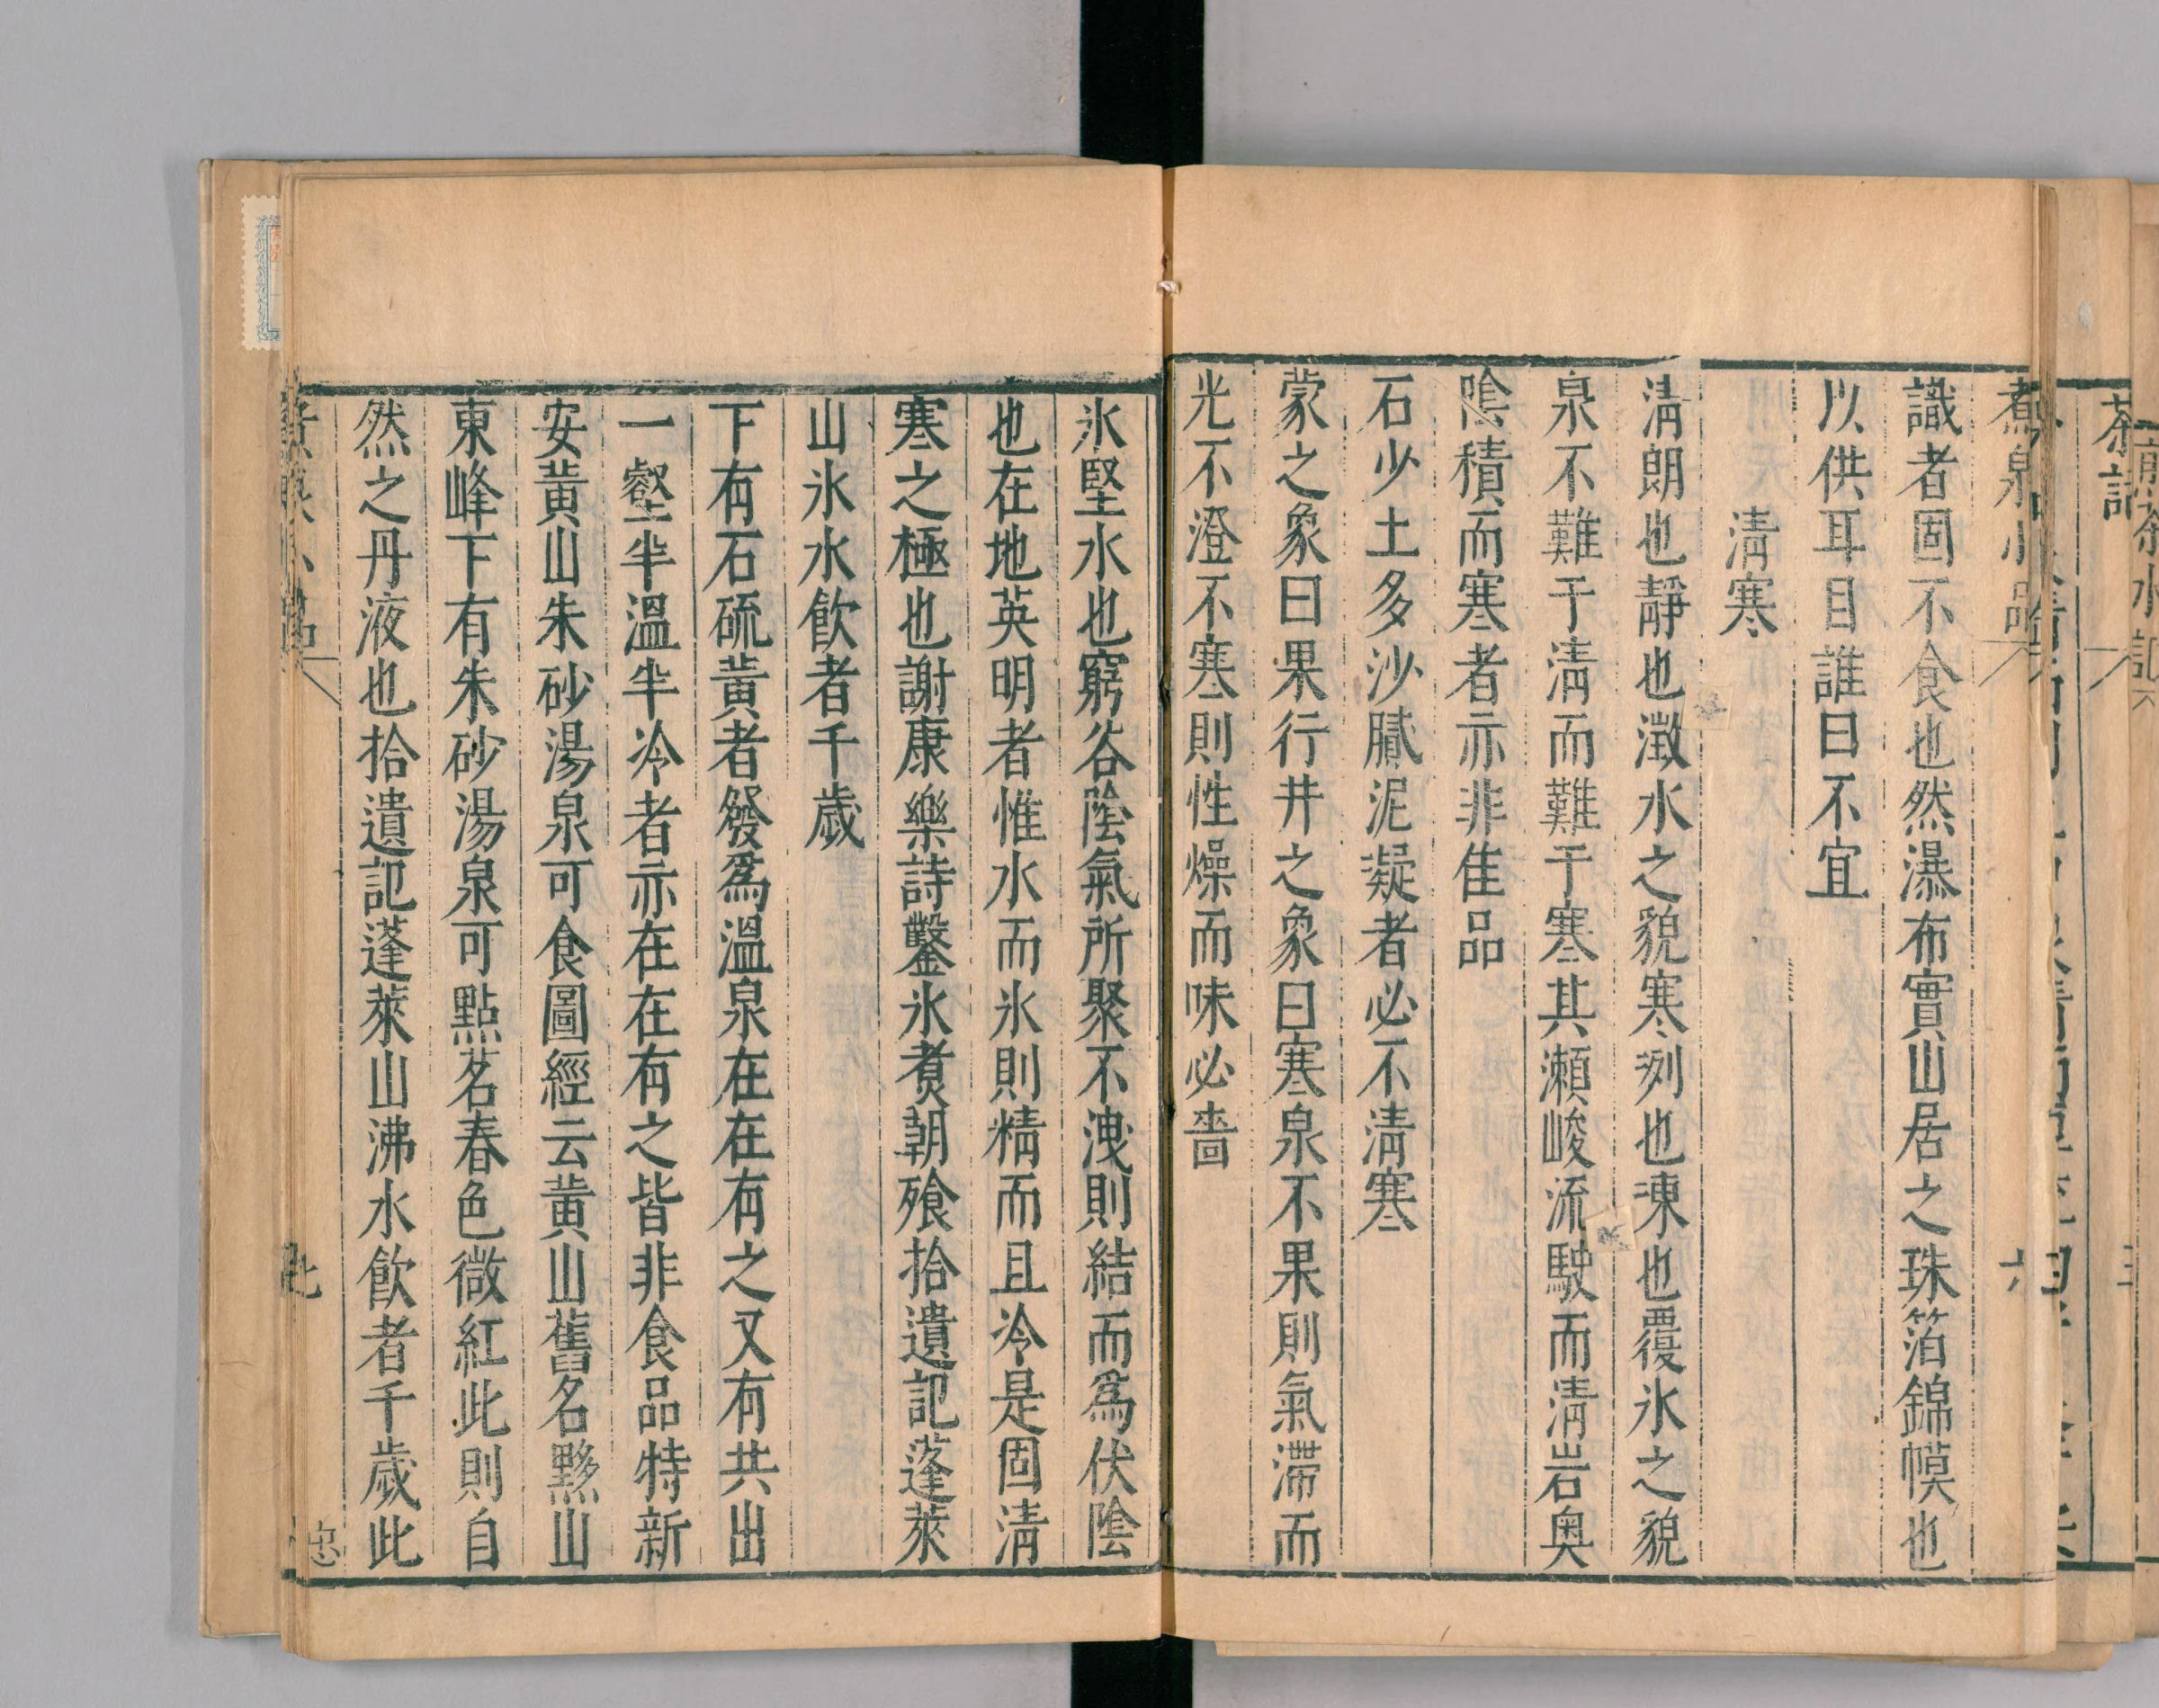 煮泉小品
六
識者固不食也然瀑布實山居之珠箔錦幙也
以供耳目誰曰不宜
清寒
清朗也靜也澂水之貌寒冽也凍也覆氷之貌
泉不難于清而難于寒其瀨峻流駛而清岩奥
陰積而寒者亦非佳品
石少土多沙膩泥凝者必不清寒
蒙之象曰果行井之象曰寒泉不果則氣滯而
光不澄不寒則性燥而味必嗇
氷堅水也窮谷陰氣所聚不洩則結而爲伏陰
也在地英明者惟水而氷則精而且冷是固清
寒之極也謝康樂詩鑿氷煑朝飱拾遺記蓬萊
山氷水飲者千歲
下有石硫黃者發爲溫泉在在有之又有共出
一壑半溫半冷者亦在在有之皆非食品特新
安黃山朱砂湯泉可食圖經云黃山舊名黟山
東峰下有朱砂湯泉可點茗春色微紅此則自
然之丹液也拾遺記蓬萊山沸水飲者千歲此